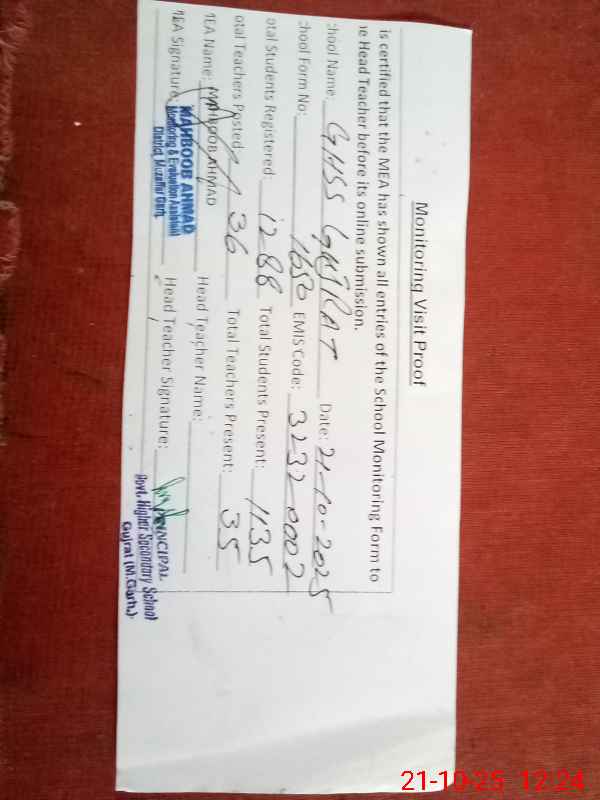 Monitoring Visit Proof
is certified that the MEA has shown all entries of the School Monitoring Form to
he Head Teacher before its online submission.
chool Name: GHSS GUJRAT Date: 21-10-2025
chool Form No: 1650 EMIS Code: 32320002
otal Students Registered: 1288 Total Students Present: 1135
otal Teachers Posted: 36 Total Teachers Present: 35
MEA Name: MAHBOOB AHMAD Head Teacher Name:
MEA Signature: Head Teacher Signature:
MAHBOOB AHMAD
Monitoring & Evaluation Assistant
District, Muzaffar Garh.
PRINCIPAL
Govt. Higher Secondary School
Gujrat (M.Garh.)
21-10-25 12:24